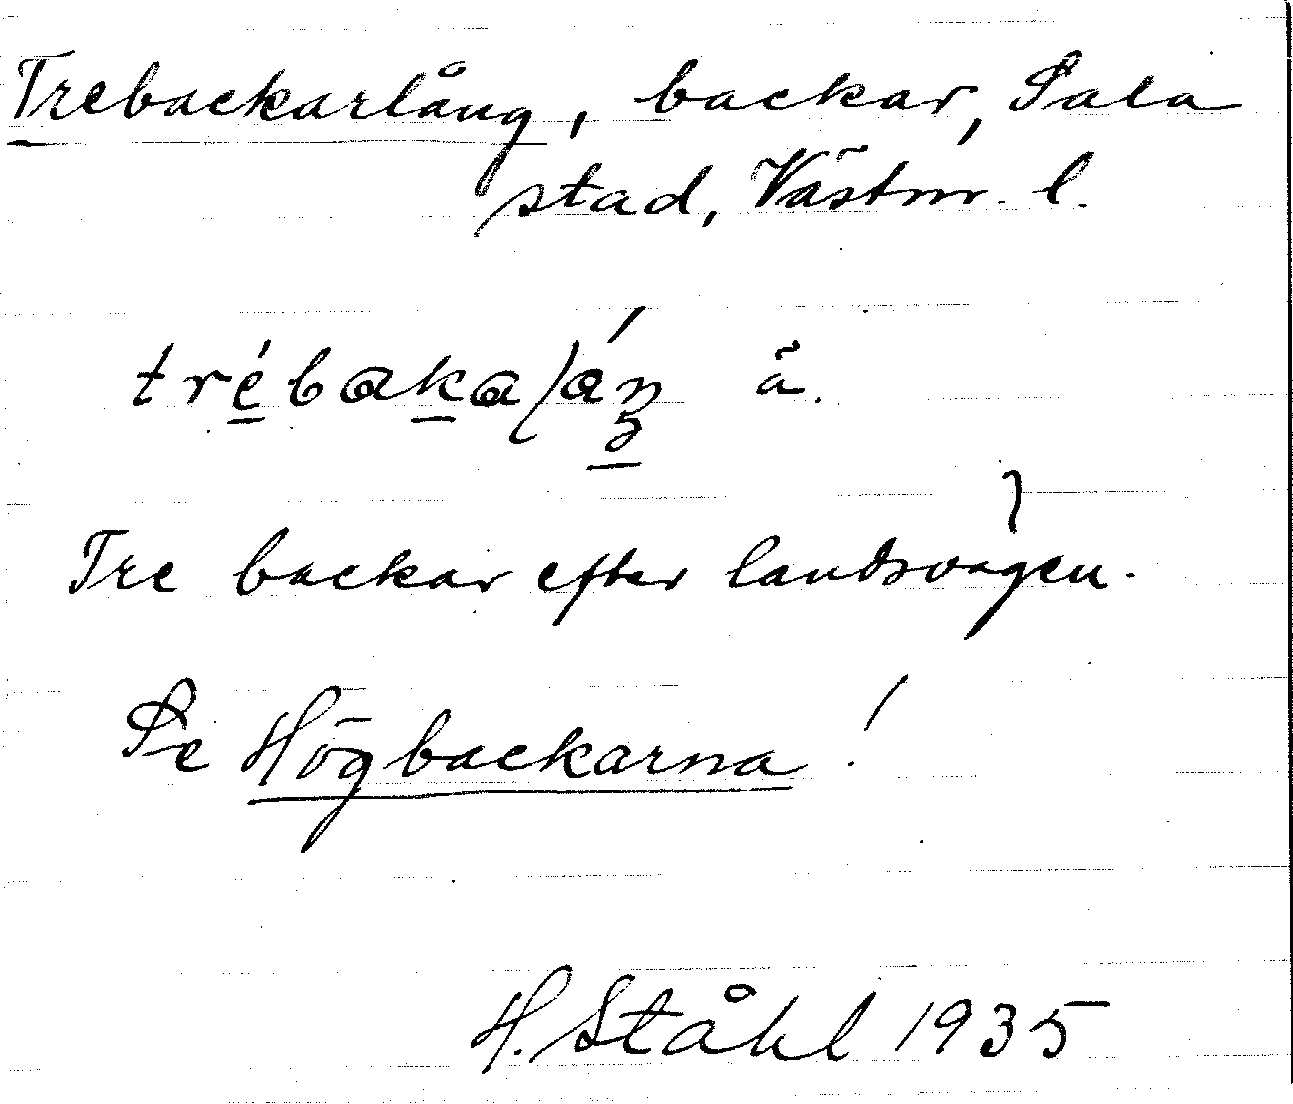 Trebackarlång, backar, Sala
stad, Västm. l.
trébakaláŋ ä.
Tre backar efter landsvägen.
Se Högbackarna!
H. Ståhl 1935